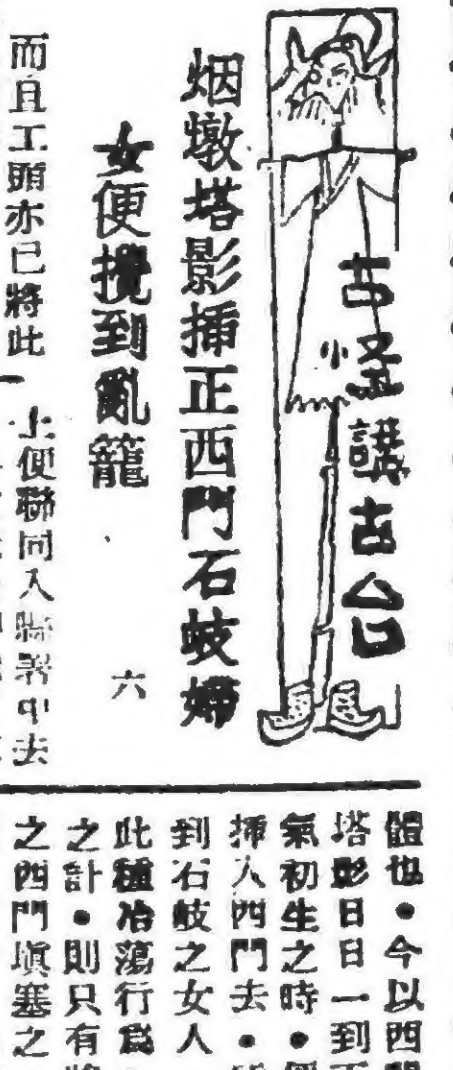 古怪講古台
小
烟墩塔影揷正西門石岐婦
女便攪到亂籠
六
而且工頭亦已將此
上便聯同入縣署中去
體也●今以西
塔影日日一到
氣初生之時●
揷入西門去●
到石岐之女人
此種冶蕩行爲
之計●則只有
之西門塡塞之